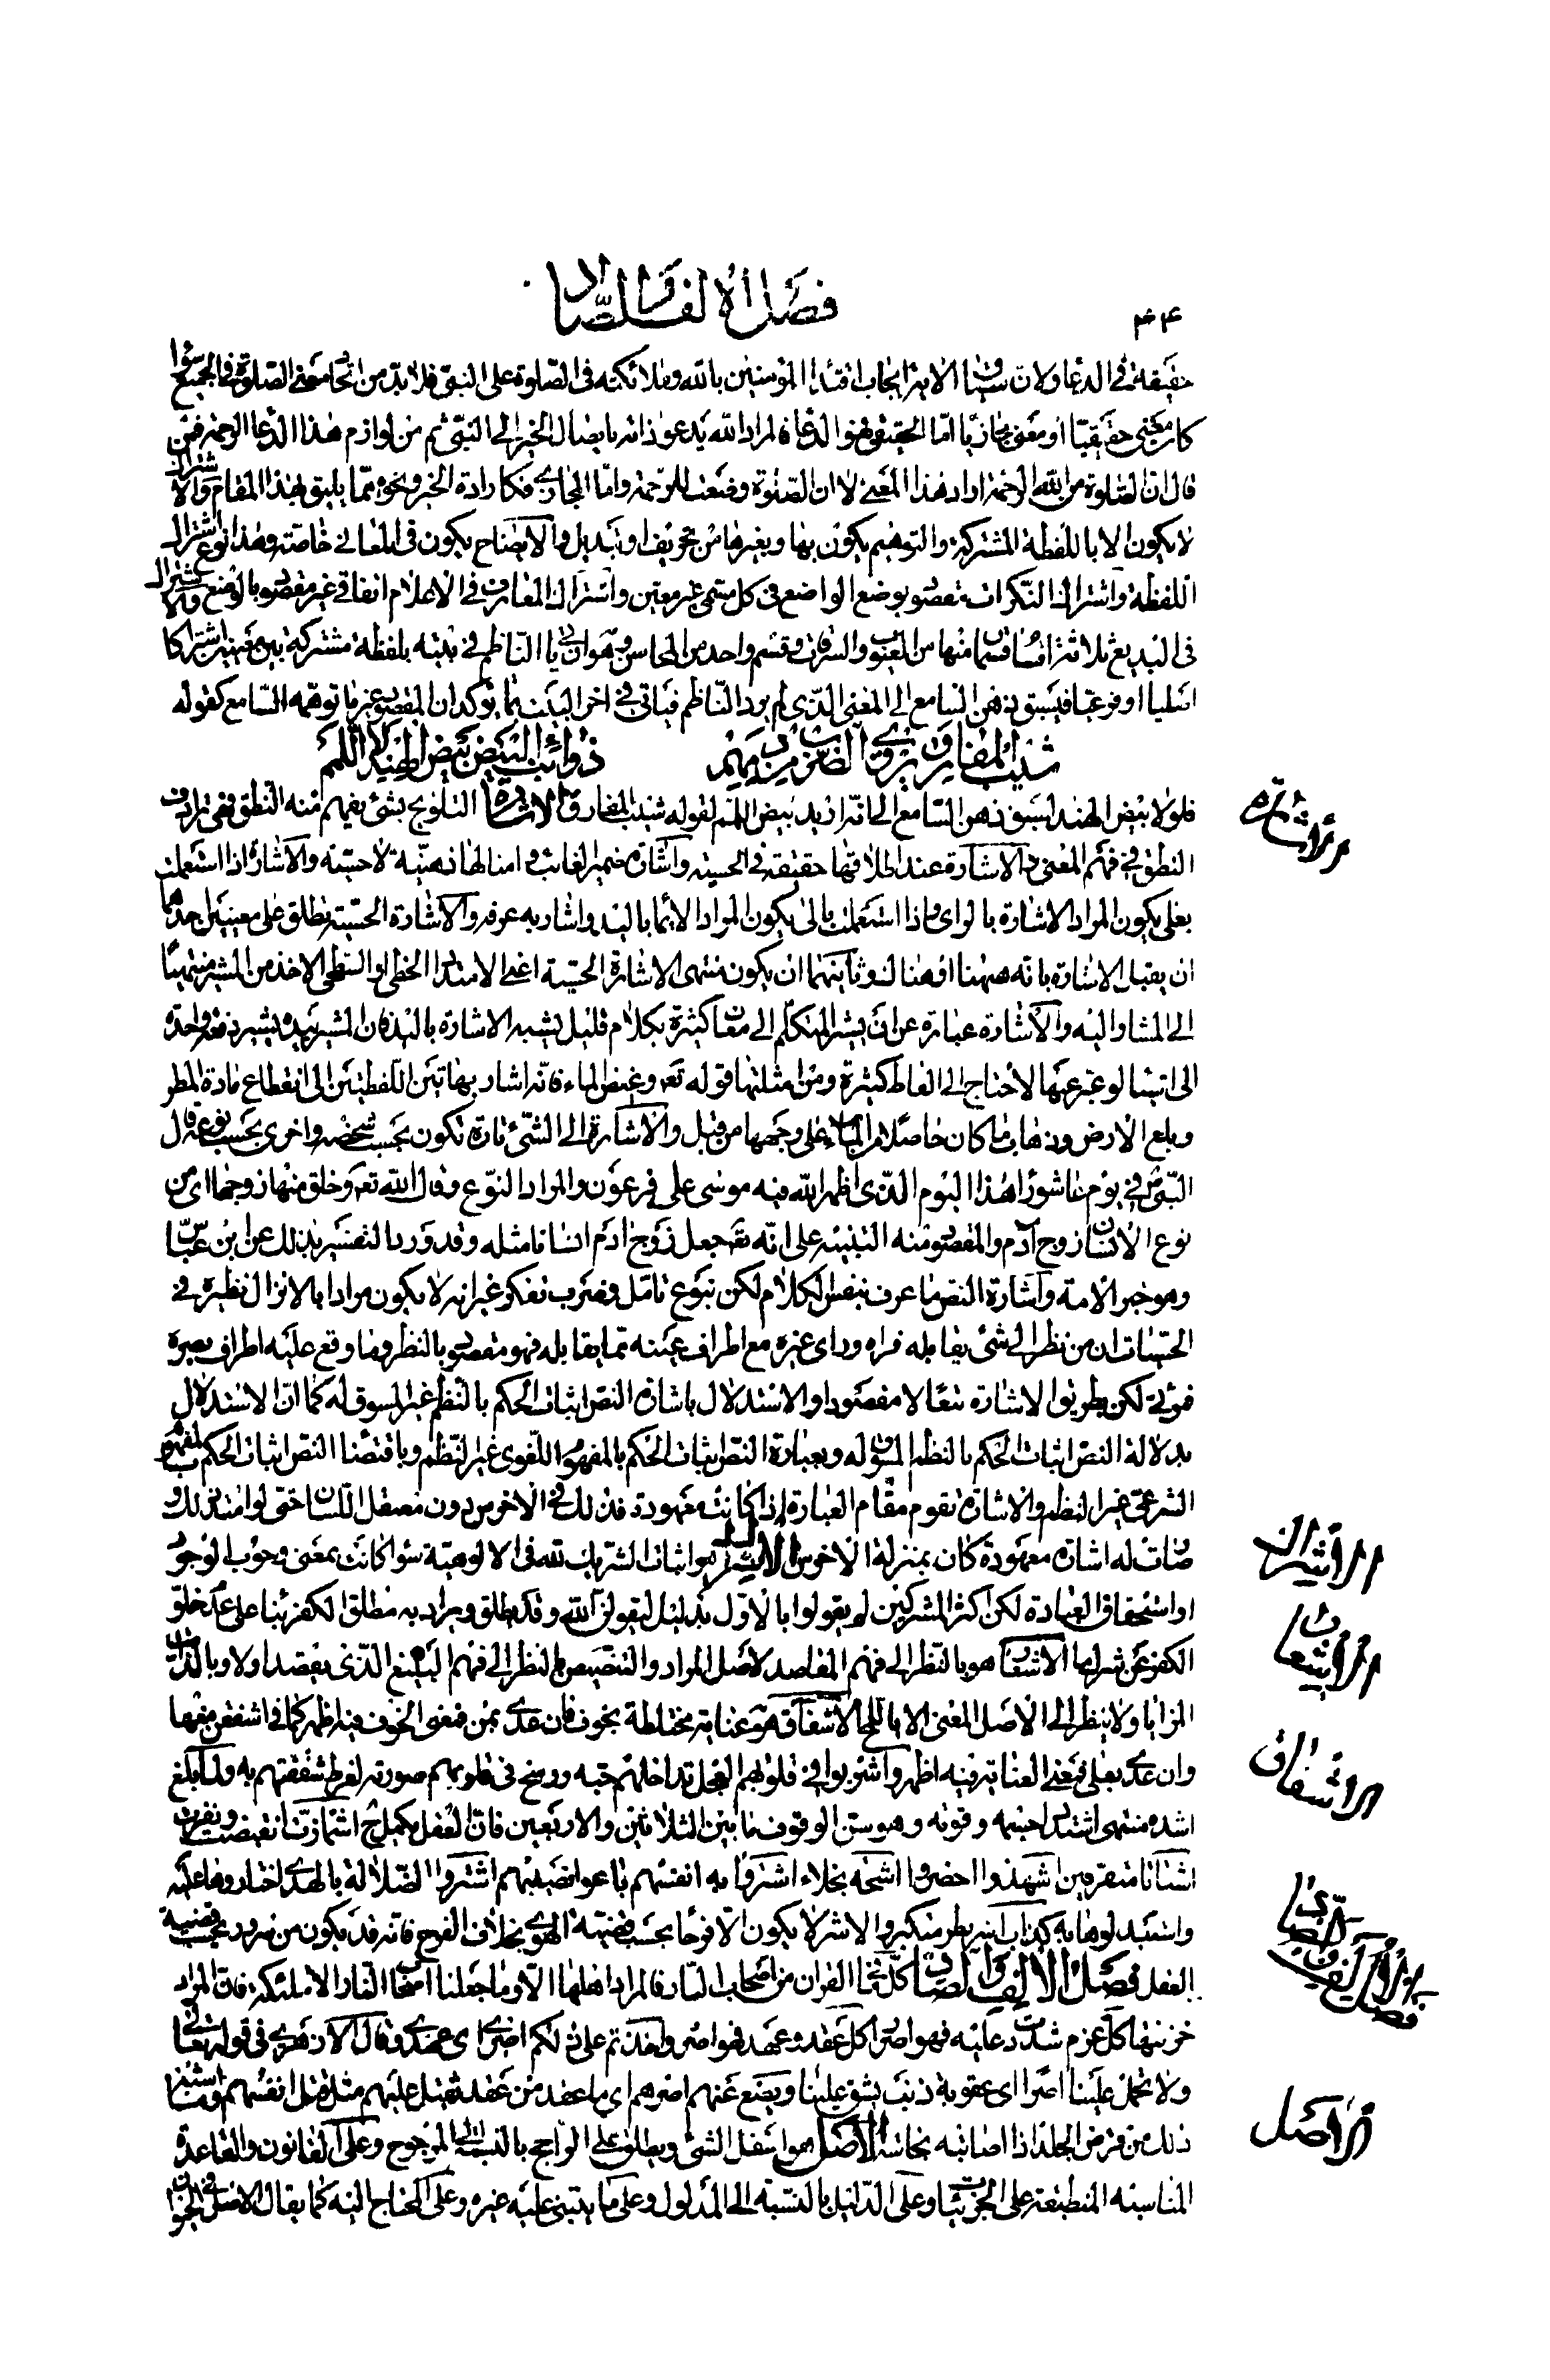 فصل الالف والصاد
٤٤
حقيقة في الدعا ولان سياق الاية ايجاب اقتداء المؤمنين بالله وملائكته في الصلوة على النبي فلا بد من اتحاد معنى الصلوة في الجميع سواء
كان معنى حقيقيا او معنى مجازيا اما الحقيقي فهو الدعاء فالمراد الله يدعو ذاته بايصال الخير الى النبي ثم من لوازم هذا الدعا الرحمة فمن
قال ان الصلوة من الله الرحمة اراد هذا المعنى لا ان الصلوة وضعت للرحمة واما المجازي فكارادة الخير ونحوه مما يليق بهذا المقام والاشتراك
لا يكون الا باللفظة المشتركة والتوهيم يكون بها وبغيرها من تحريف او تبديل والايضاح يكون في المعاني خاصة وهذا نوع اشتراك
اللفظة واشتراك النكرات مقصود بوضع الواضع في كل مسمى غير معين واشتراك المعارف في الاعلام اتفاقي غير مقصود بالوضع والاشتراك
في البديع ثلاثة اقسام قسمان منها من العيوب والسرقات وقسم واحد من المحاسن وهو ان ياتي الناظم في بيته بلفظة مشتركة بين معنيين اشتراكا
اصليا او فرعيا فيسبق ذهن السامع الى المعنى الذي لم يرد الناظم فياتي في اخر البيت بما يؤكد ان المقصود غير ما توهمه السامع كقوله
شيب المفارق يروي الضرب من دمهم ذوائب البيض بيض الهند لا اللمم
فلولا بيض الهند لسبق ذهن السامع الى انه اراد بيض اللمم لقوله شيب المفارق الاشارة التلويح بشئ يفهم منه النطق فهي ترادف
النطق في فهم المعنى والاشارة عند اطلاقها حقيقة في الحسية واشارة ضمير الغائب وامثالها ذهنية لا حسية والاشارة اذا استعملت
بعلى يكون المراد الاشارة بالراي واذا استعملت بالى يكون المراد الايماء باليد واشار به عرفه والاشارة الحسية تطلق على معنيين احدهما
ان يقبل الاشارة بانه ههنا او هناك وثانيهما ان يكون منتهى الاشارة الحسية اعني الامتداد الخطي او السطحي الاخذ من المشير منتهيا
الى المشار اليه والاشارة عبارة عن ان يشير المتكلم الى معان كثيرة بكلام قليل يشبه الاشارة باليد فان المشير بيده يشير دفعة واحدة
الى اشيا لو عبر عنها لاحتاج الى الفاظ كثيرة ومن امثلتها قوله تع وغيض الماء فانه اشار بهاتين اللفظتين الى انقطاع مادة المطر
وبلع الارض وذهاب ما كان حاصلا من الماء على وجهها من قبل والاشارة الى الشئ تارة تكون بحسب شخصه واخرى بحسب نوعه قال
النبي ص في يوم عاشورا هذا اليوم الذي اظهر الله فيه موسى على فرعون والمراد النوع وقال الله تع وخلق منها زوجها اي من
نوع الانسان زوج آدم والمقصود منه التنبيه على انه تع جعل زوج آدم انسانا مثله وقد ورد التفسير بذلك عن ابن عباس
وهو حبر الامة واشارة النص ما عرف بنفس الكلام لكن بنوع تامل وضرب تفكر غير انه لا يكون مرادا بالانزال نظيره في
الحسيات ان من نظر الى شئ يقابله فراه وراى غيره مع اطراف عينه مما يقابله فهو مقصود بالنظر وما وقع عليه اطراف بصره
فمرئي لكن بطريق الاشارة تبعا لا مقصودا والاستدلال باشارة النص اثبات الحكم بالنظم غير المسوق له كما ان الاستدلال
بدلالة النص اثبات الحكم بالنظم المسوق له وبعبارة النص اثبات الحكم بالمفهوم اللغوي غير النظم وباقتضا النص اثبات الحكم بالمفهوم
الشرعي غير النظم والاشارة تقوم مقام العبارة اذا كانت معهودة فذلك في الاخرس دون معتقل اللسان حتى لو امتد ذلك و
صارت له اشارة معهودة كان بمنزلة الاخرس الاشراك هو اثبات الشريك لله في الالوهية سوا كانت بمعنى وجوب الوجود
او استحقاق العبادة لكن اكثر المشركين لم يقولوا بالاول بدليل ليقولن الله وقد يطلق ويراد به مطلق الكفر بنا على عدم خلو
الكفر عن شرك ما الاشعار هو بالنظر الى فهم المقاصد لاصل المراد والتنصيص بالنظر الى فهم البليغ الذي يقصد اولا وبالذات
المزايا ولا ينظر الى الاصل المعنى الا باللمح الاشفاق هو عناية مختلطة بخوف فان عدى بمن فمعنى الخوف فيه اظهر كما في اشفقن منها
وان عدى بعلى فمعنى العناية فيه اظهر واشربوا في قلوبهم العجل تداخلهم حبه ورسخ في قلوبهم صورته لفرط شغفهم به ولما بلغ
اشده منتهى اشتداد جسمه وقوته وهو سن الوقوف ما بين الثلاثين والاربعين فان العقل يكمل ح اشمازت انقبضت ونفرت
اشتاتا متفرقين اشهدوا احضروا اشحة بخلاء اشتروا به انفسهم باعوا نصيبهم اشتروا الضلالة بالهدى اختاروها عليه
واستبدلوها به كذاب اشر بطر متكبر والاشر لا يكون الا فرحا بحسب قضية الهوى بخلاف الفرح فانه قد يكون من سرور بحسب قضية
العقل فصل الالف والصاد كل ما في القران من اصحاب النار فالمراد اهلها الا وما جعلنا اصحاب النار الا ملئكة فان المراد
خزنتها كل عزم شددت عليه فهو اصر كل عقد وعهد فهو اصر واخذتم على ذلكم اصري اي عهدي وقال الازهري في قوله تعالى
ولا تحمل علينا اصرا اي عقوبة ذنب يشق علينا ويضع عنهم اصرهم اي ما عقد من عقد ثقيل عليهم مثل قتل انفسهم وما اشبه
ذلك من قرض الجلد اذا اصابته نجاسة الاصل هو اسفل الشئ ويطلق على الراجح بالنسبة الى المرجوح وعلى القانون والقاعدة
المناسبة المنطبقة على الجزئيات وعلى الدليل بالنسبة الى المدلول وعلى ما يبتنى عليه غيره وعلى المحتاج اليه كما يقال الاصل في الحيوان
الاشارة
الاشراك
الاشعار
الاشفاق
فصل الالف والصاد
الاصل